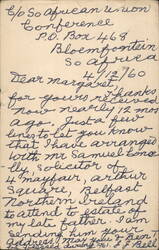 C/o So African Union
Conference
P.O. Box 468
Bloemfontein
So Africa
4/12/60
Dear Margaret
for yours Thanks
received
now nearly 12 mon
ago. Just a few
lines to let you know
that I have arranged
with mr Samuel
solicitor of
4 mayfair, arthur
Square, Belfast
Northern Ireland
to attend to estate of
my late father. I am
sending him your
address. May you